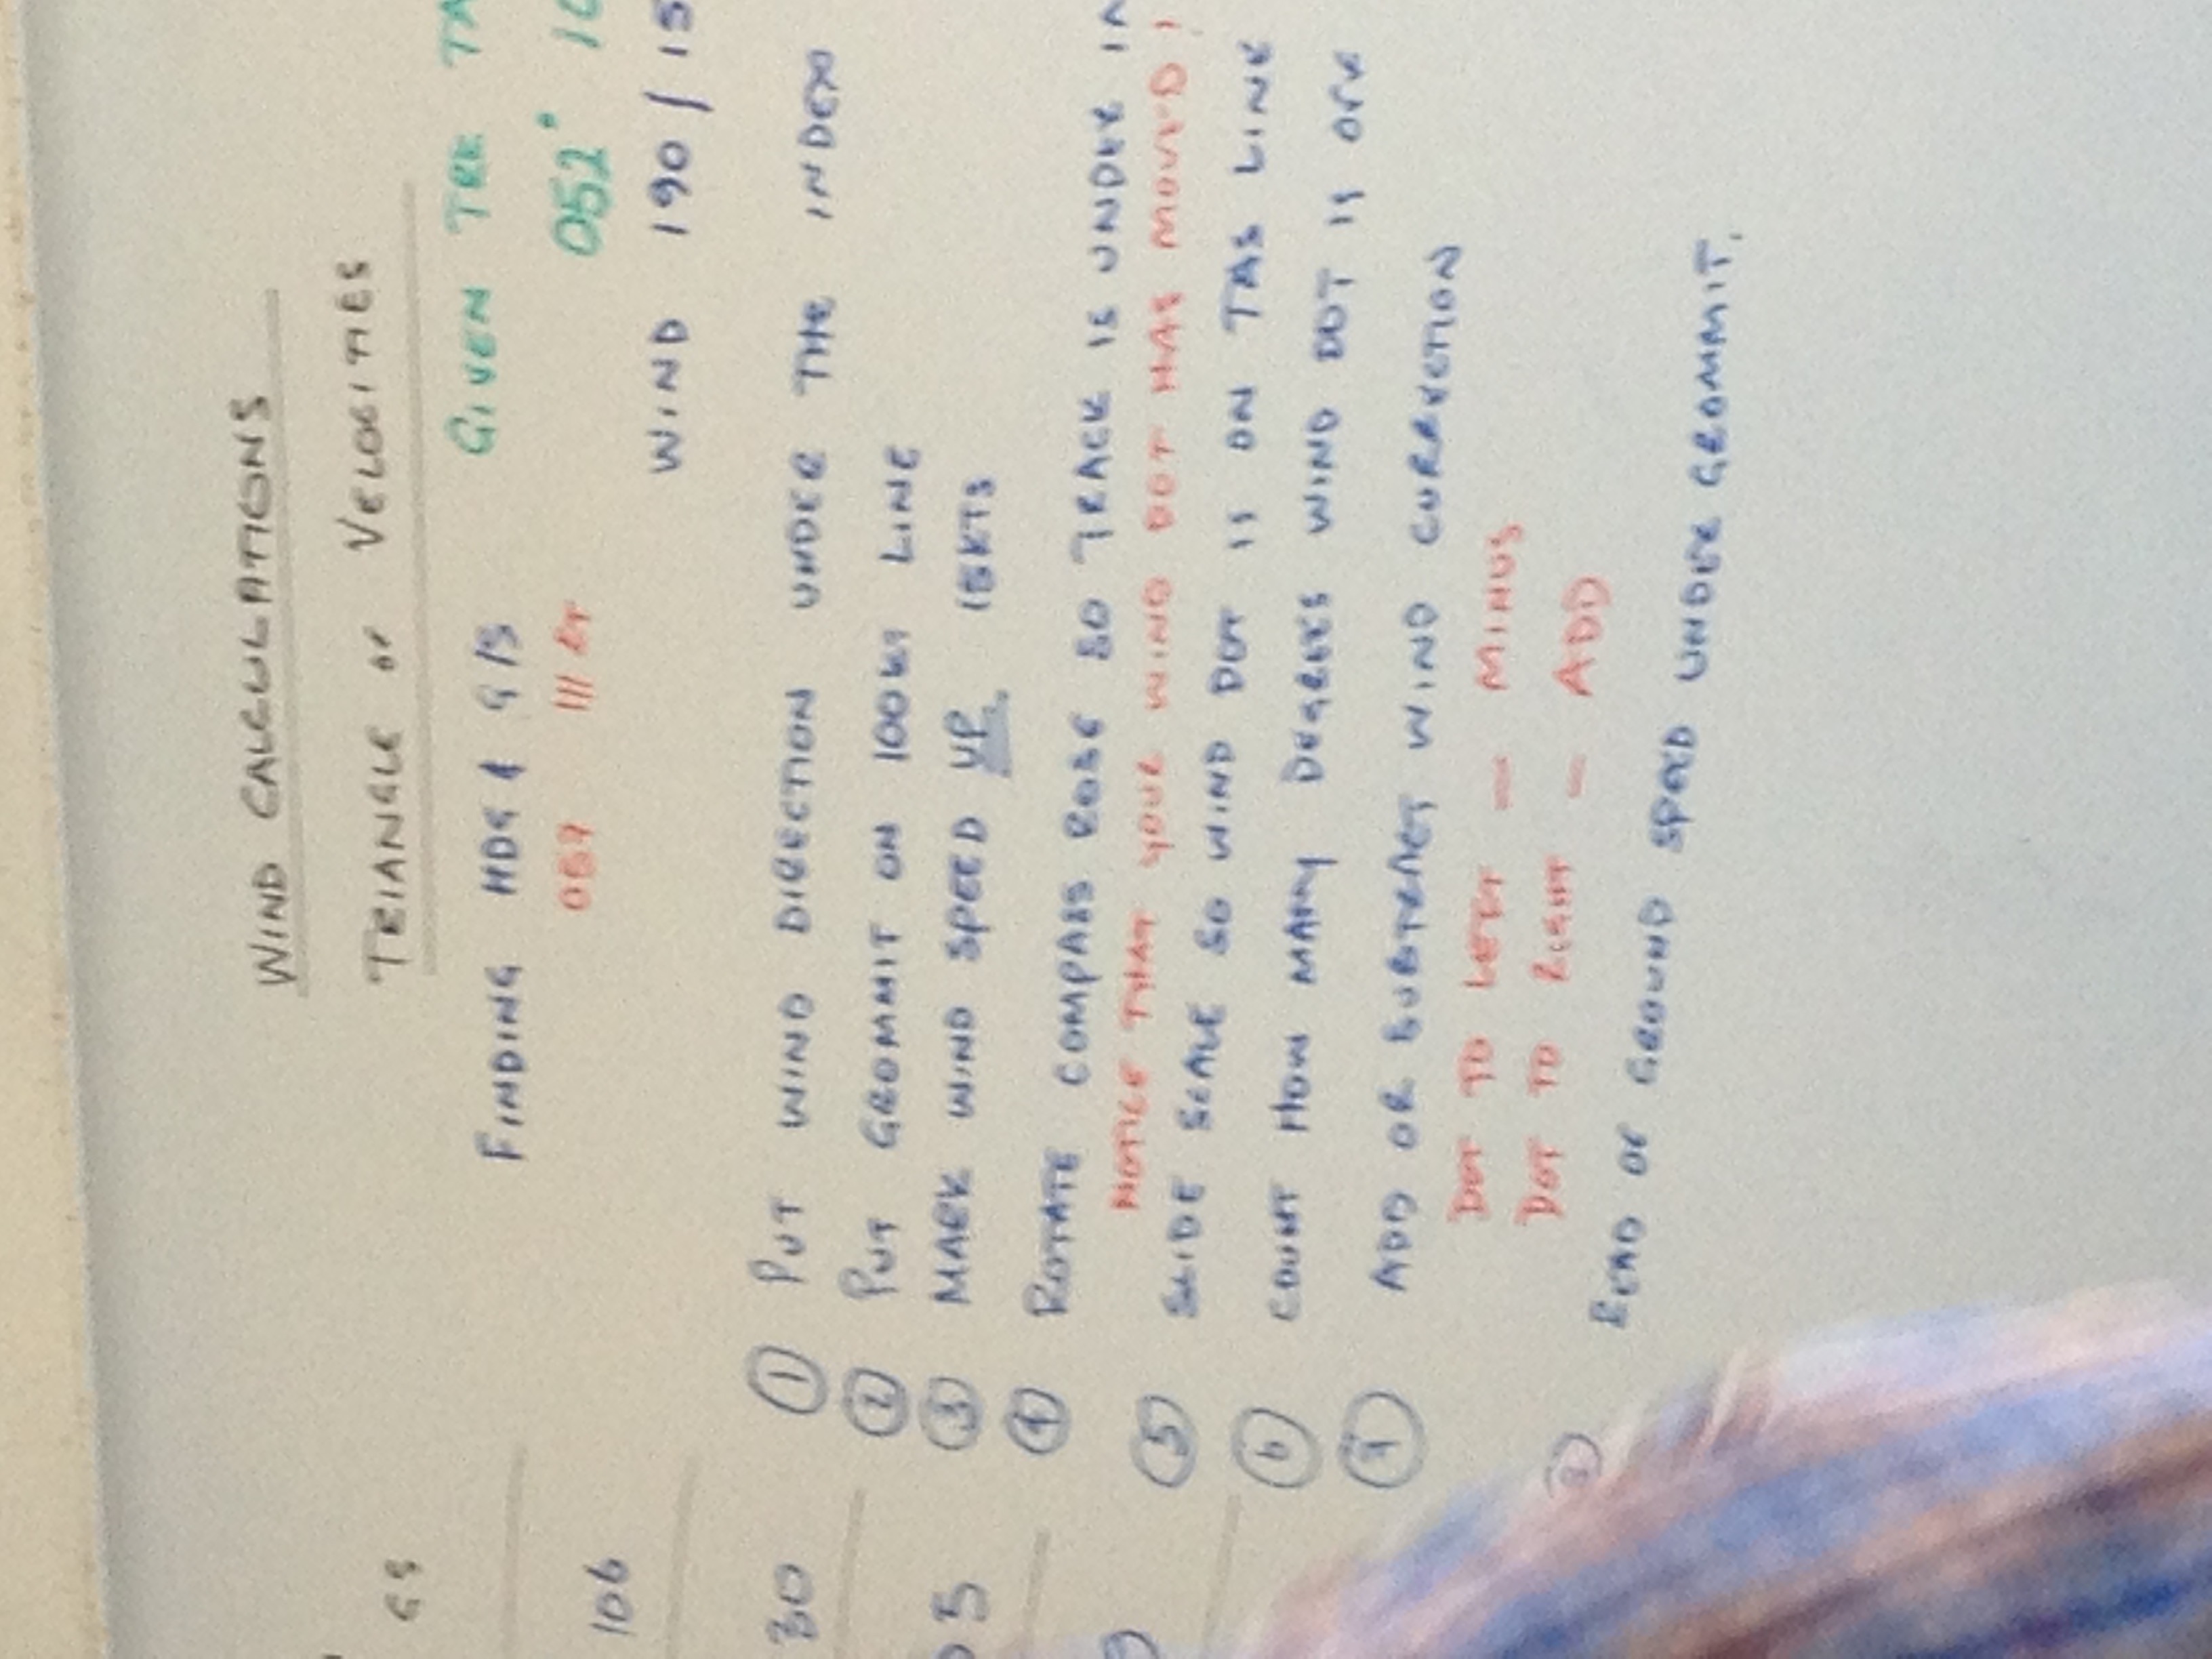 WIND CALCULATIONS
TRIANGLE OF VELOCITIES
GS
FINDING HDG & G/S
GIVEN TRK TA
111 KT
052° 10
106
WIND 190 / 15
30
① PUT WIND DIRECTION UNDER THE INDEX
② PUT GROMMIT ON 100KT LINE
5
③ MARK WIND SPEED UP. 15KTS
④ ROTATE COMPASS ROSE SO TRACK IS UNDER IN
NOTICE THAT YOUR WIND DOT HAS MOVED!
⑤ SLIDE SCALE SO WIND DOT IS ON TAS LINE
⑥ COUNT HOW MANY DEGREES WIND DOT IS OFF
⑦ ADD OR SUBTRACT WIND CORRECTION
DOT TO LEFT — MINUS
DOT TO RIGHT — ADD
READ OF GROUND SPEED UNDER GROMMIT.